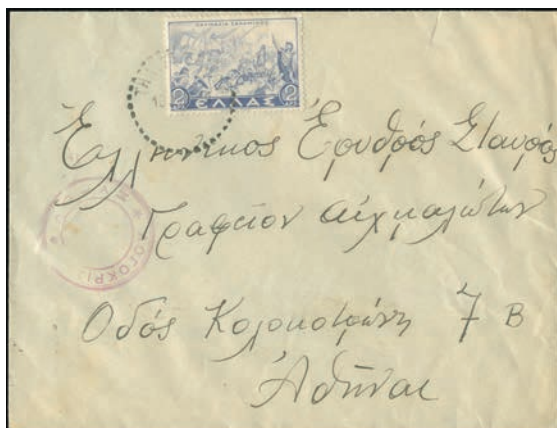 2 ΕΛΛΑΣ 2
Ἑλληνικος Ἐρυθρός Σταυρός
Γραφεῖον αἰχμαλώτων
Ὁδός Κολοκοτρώνη 7 Β
Ἀθῆναι
ΛΟΓΟΚΡΙΣ